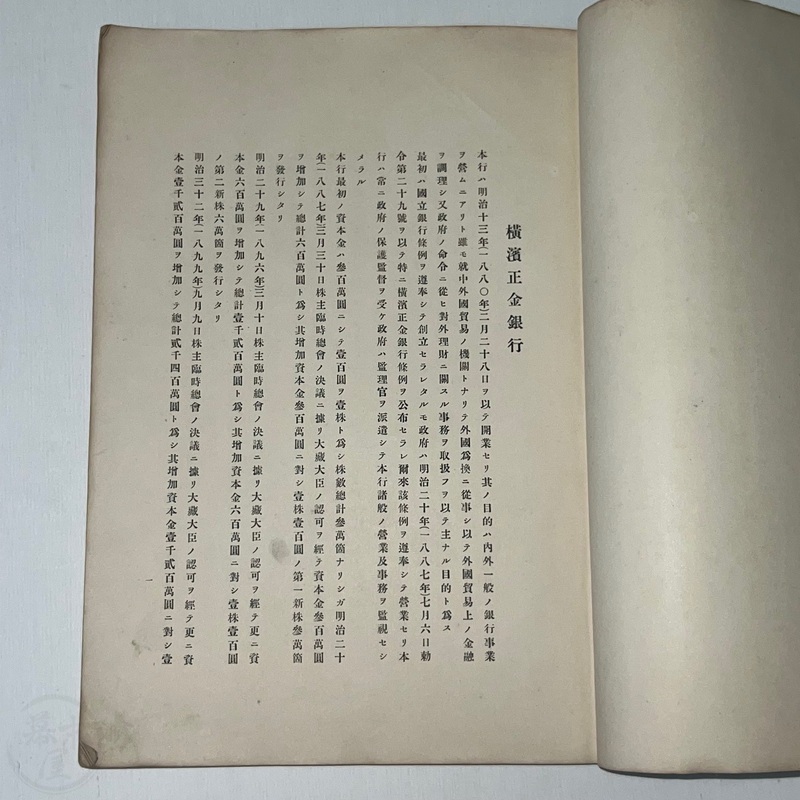 橫濱正金銀行
本行ハ明治十三年(一八八〇年)二月二十八日ヲ以テ開業セリ其ノ目的ハ內外一般ノ銀行事業
ヲ營ムニアリト雖モ就中外國貿易ノ機關トナリテ外國爲換ニ從事シ以テ外國貿易上ノ金融
ヲ調理シ又政府ノ命令ニ從ヒ對外理財ニ關スル事務ヲ取扱フヲ以テ主ナル目的ト爲ス
最初ハ國立銀行條例ヲ遵奉シテ創立セラレタルモ政府ハ明治二十年(一八八七年)七月六日勅
令第二十九號ヲ以テ特ニ橫濱正金銀行條例ヲ公布セラレ爾來該條例ヲ遵奉シテ營業セリ本
行ハ常ニ政府ノ保護監督ヲ受ケ政府ハ監理官ヲ派遣シテ本行諸般ノ營業及事務ヲ監視セシ
メラル
本行最初ノ資本金ハ參百萬圓ニシテ壹百圓ヲ壹株ト爲シ株敎總計參萬箇ナリシガ明治二十
年(一八八七年)三月三十日株主臨時總會ノ決議ニ據リ大藏大臣ノ認可ヲ經テ資本金參百萬圓
ヲ增加シテ總計六百萬圓ト爲シ其增加資本金參百萬圓ニ對シ壹株壹百圓ノ第一新株參萬箇
ヲ發行シタリ
明治二十九年(一八九六年)三月十日株主臨時總會ノ決議ニ據リ大藏大臣ノ認可ヲ經テ更ニ資
本金六百萬圓ヲ增加シテ總計壹千貳百萬圓ト爲シ其增加資本金六百萬圓ニ對シ壹株壹百圓
ノ第二新株六萬箇ヲ發行シタリ
明治三十二年(一八九九年)九月九日株主臨時總會ノ決議ニ據リ大藏大臣ノ認可ヲ經テ更ニ資
本金壹千貳百萬圓ヲ增加シテ總計貳千四百萬圓ト爲シ其增加資本金壹千貳百萬圓ニ對シ壹
一